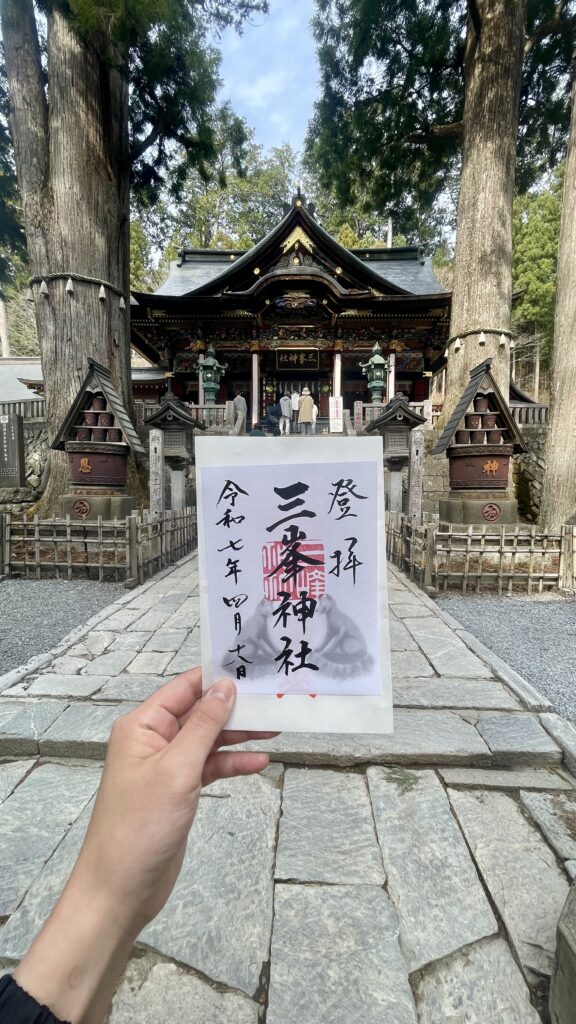 三峯神社
登拝
三峯神社
令和七年四月
日
神